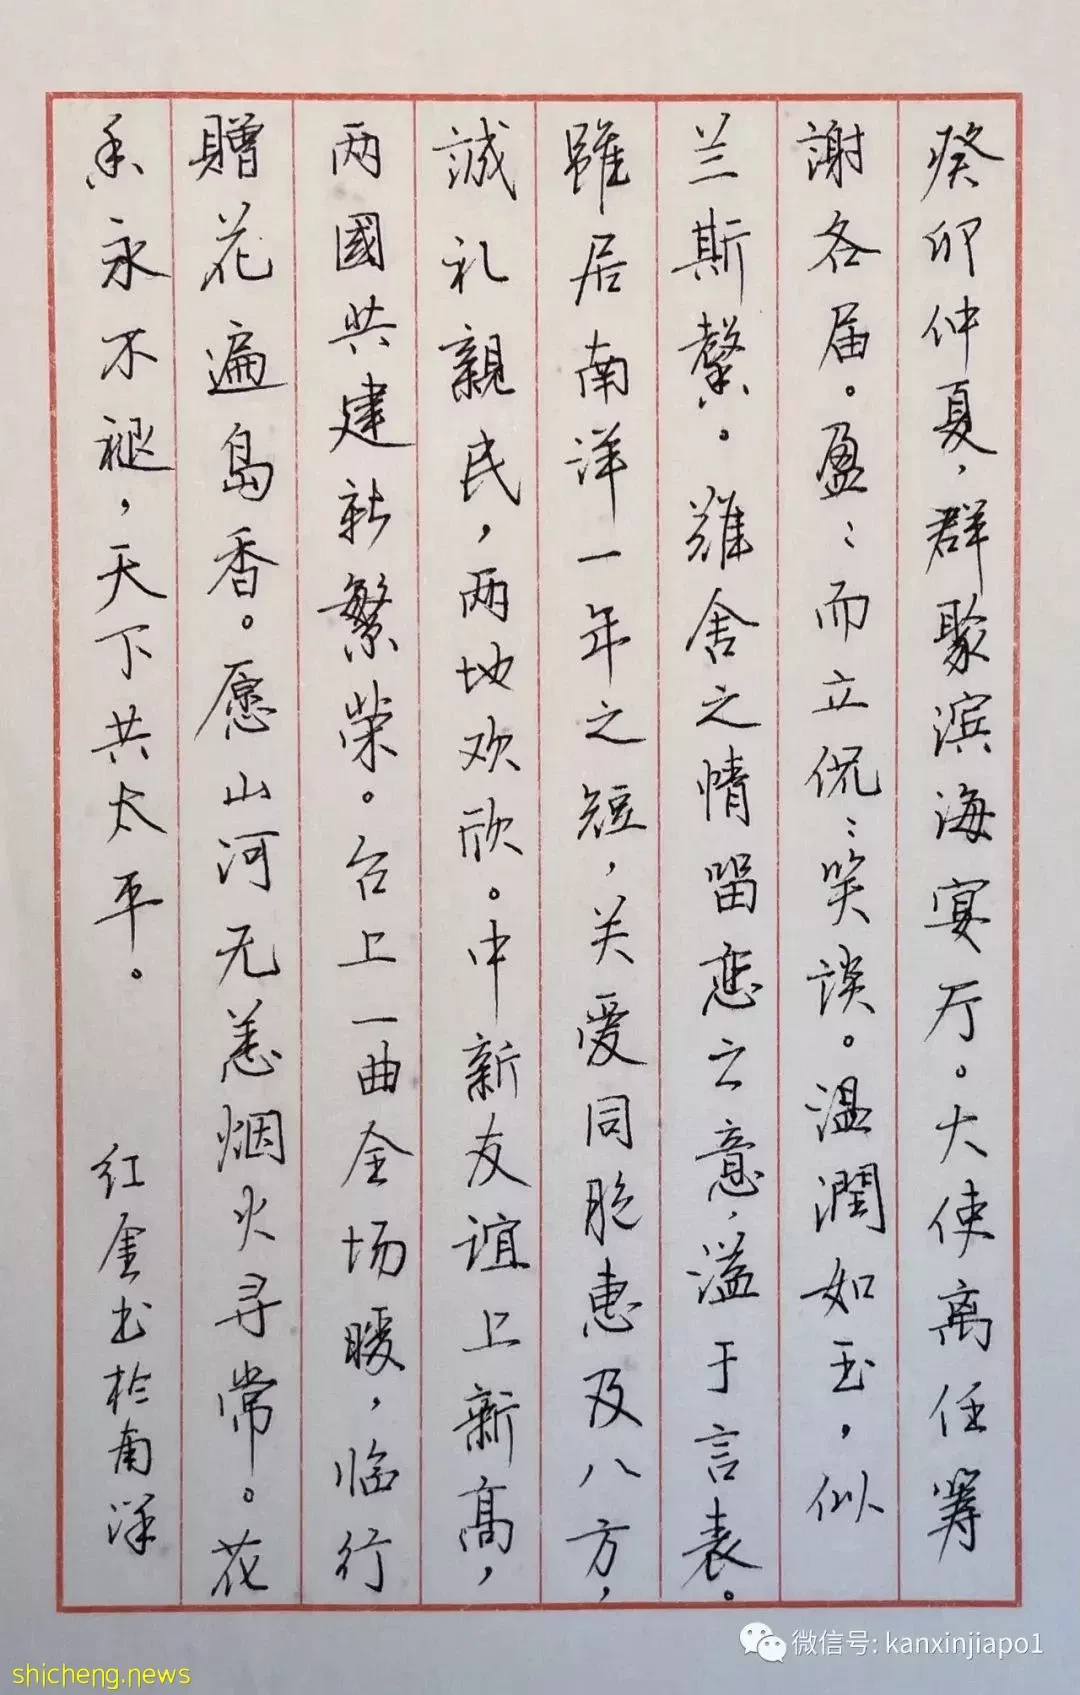 癸卯仲夏，群聚滨海宴厅。大使离任筹
謝各届。盈：而立侃：笑谈。温潤如玉，似
兰斯馨。難舍之情留恋之意，溢于言表。
雖居南洋一年之短，关爱同胞惠及八方，
誠礼親民，两地欢欣。中新友谊上新高，
两國共建新繁荣。台上一曲全场暖，临行
贈花遍島香。愿山河无恙烟火寻常。花
香永不褪，天下共太平。
红金书於南洋
微信号: kanxinjiapo1
shicheng.news